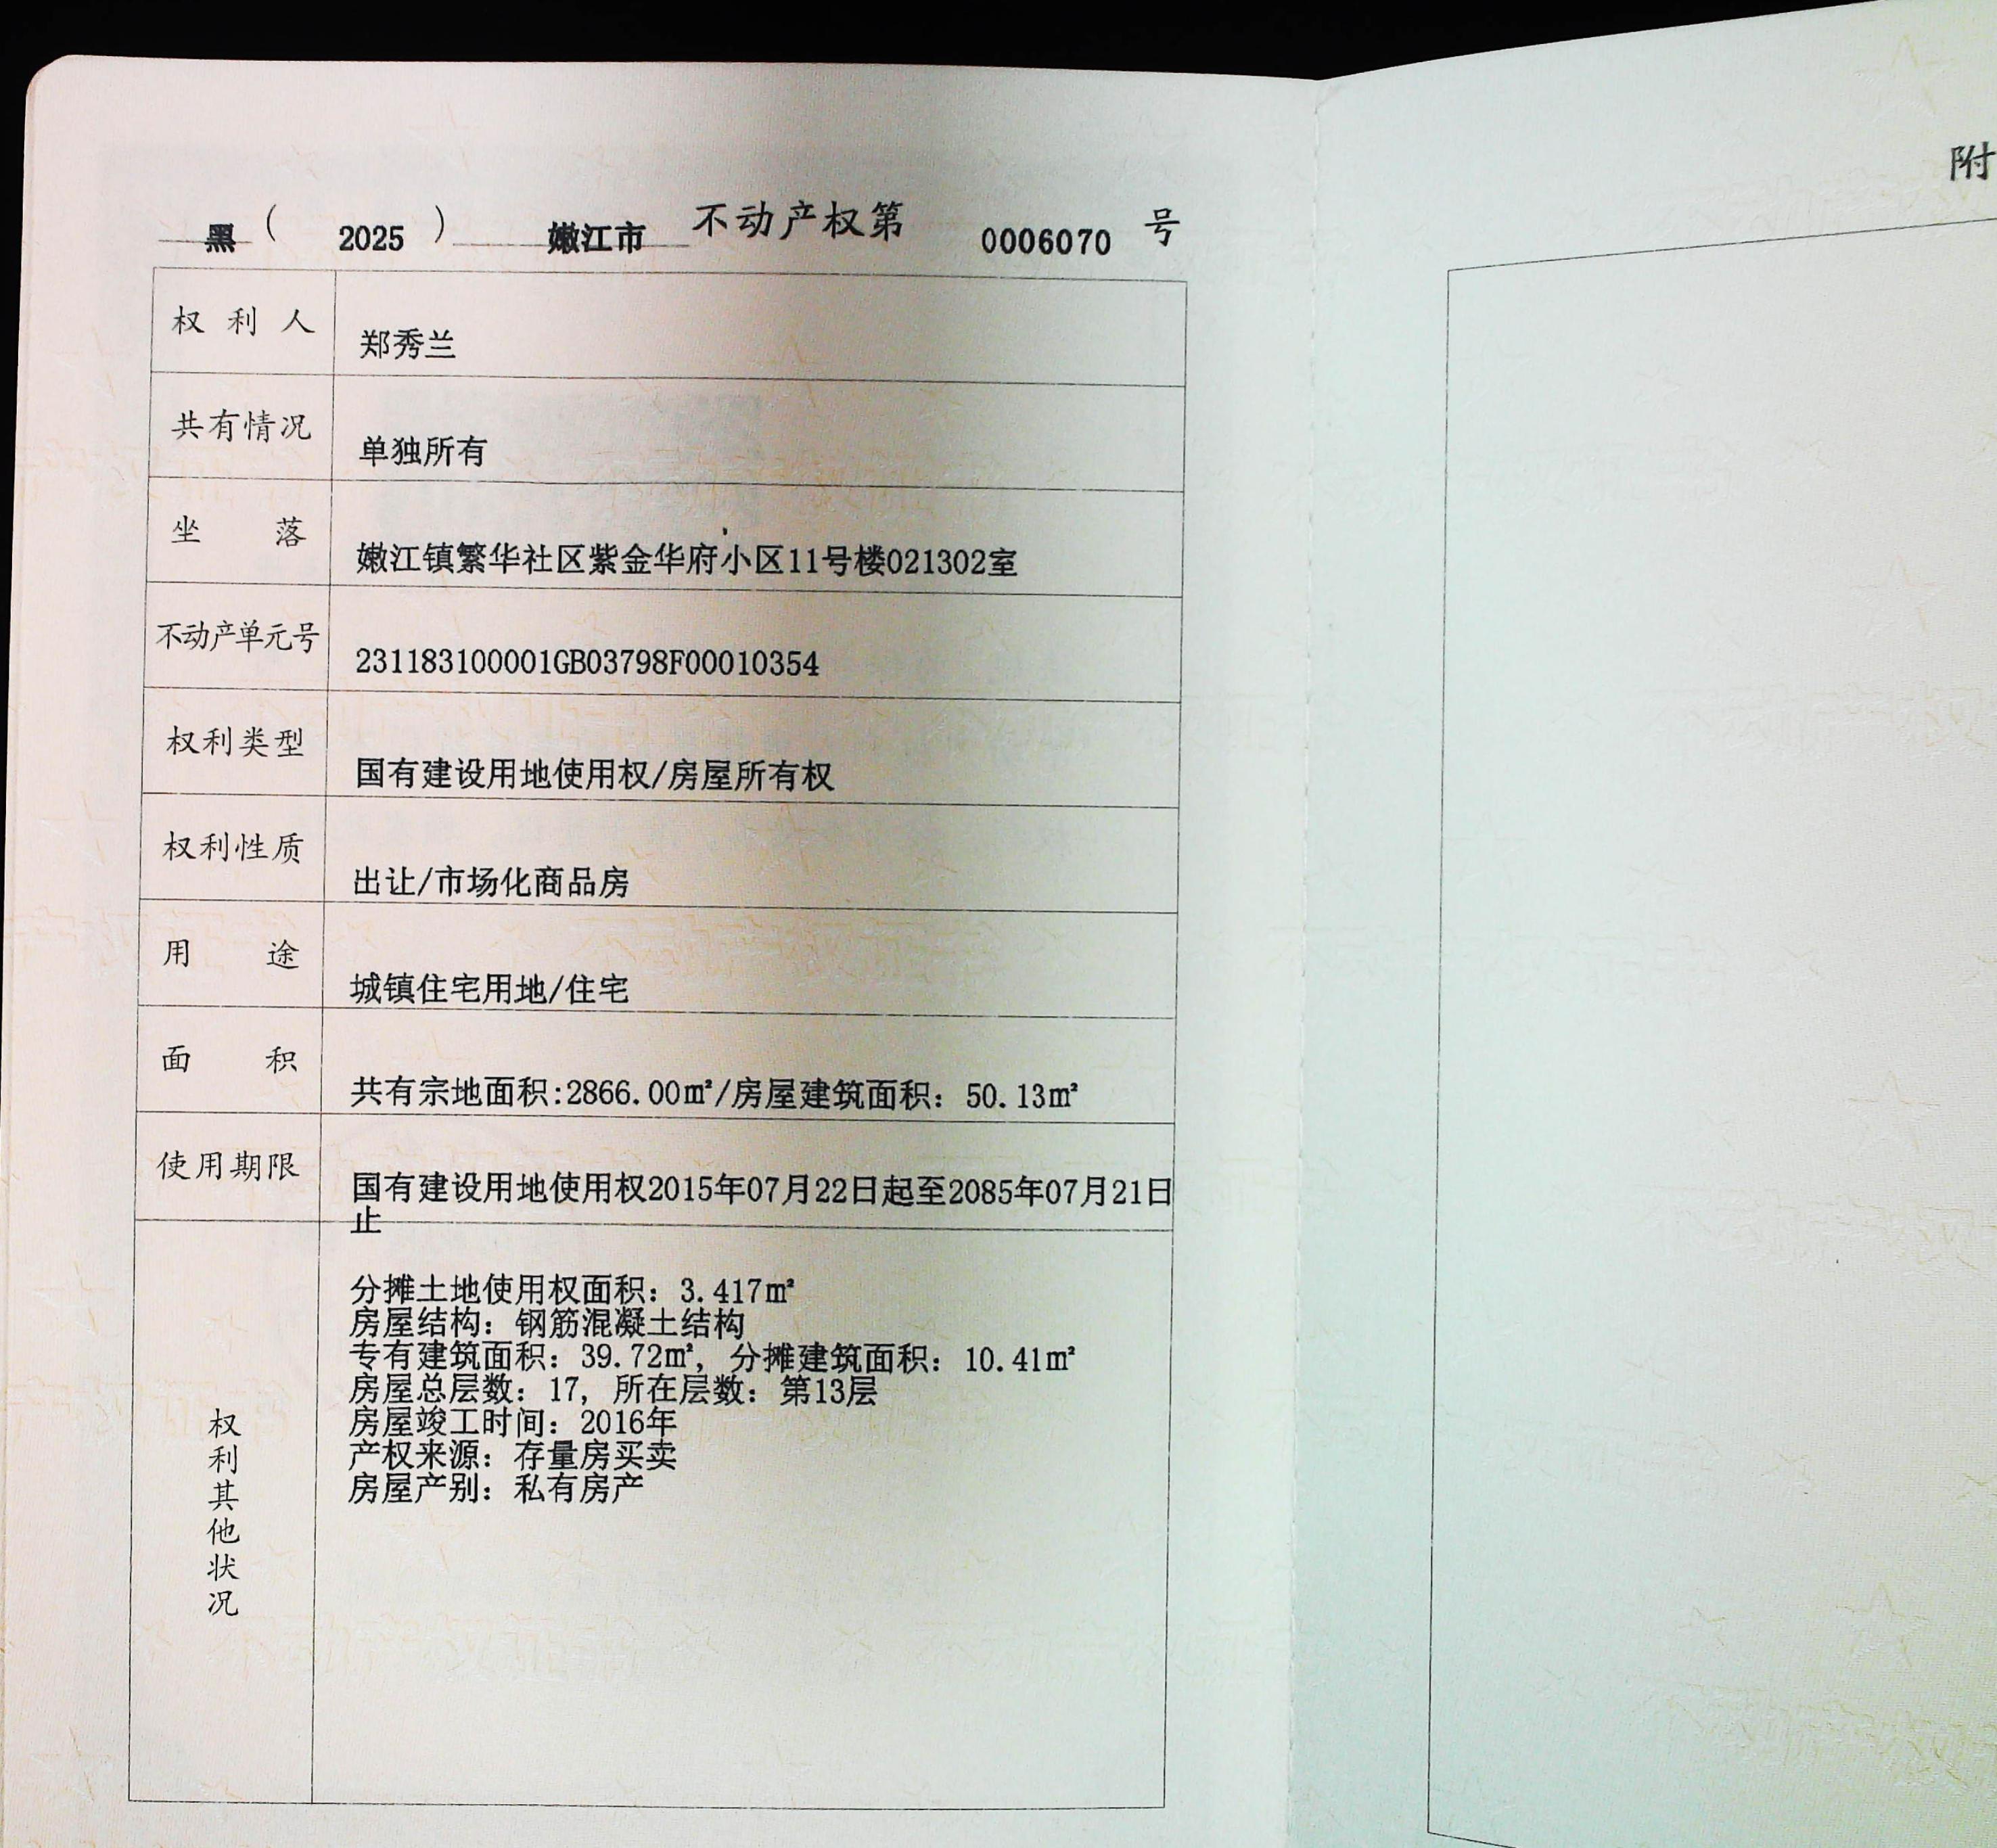 黑（2025）嫩江市不动产权第0006070号
附
权利人 郑秀兰
共有情况 单独所有
坐落 嫩江镇繁华社区紫金华府小区11号楼021302室
不动产单元号 231183100001GB03798F00010354
权利类型 国有建设用地使用权/房屋所有权
权利性质 出让/市场化商品房
用途 城镇住宅用地/住宅
面积 共有宗地面积:2866.00㎡/房屋建筑面积：50.13㎡
使用期限 国有建设用地使用权2015年07月22日起至2085年07月21日
止
权利其他状况
分摊土地使用权面积：3.417㎡
房屋结构：钢筋混凝土结构
专有建筑面积：39.72㎡，分摊建筑面积：10.41㎡
房屋总层数：17，所在层数：第13层
房屋竣工时间：2016年
产权来源：存量房买卖
房屋产别：私有房产